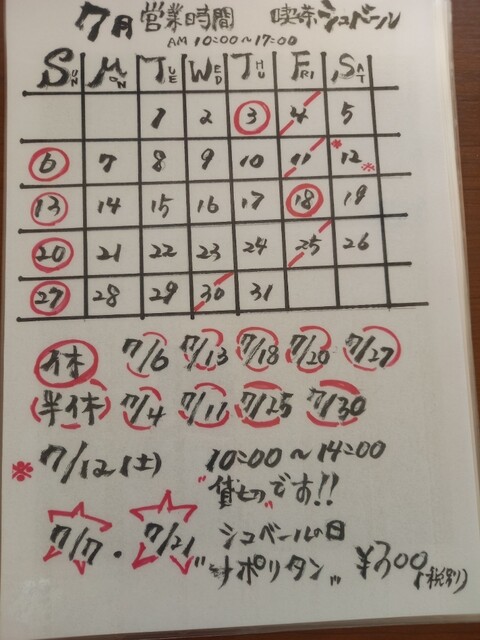 7月 営業時間 喫茶シュベール
AM 10:00〜17:00
SUN MON TUE WED THU FRI SAT
1 2 3 4 5
6 7 8 9 10 11 ※12※
13 14 15 16 17 18 19
20 21 22 23 24 25 26
27 28 29 30 31
休 7/6 7/13 7/18 7/20 7/27
(半休) 7/4 7/11 7/25 7/30
※7/12(土) 10:00〜14:00
"貸切"です!!
7/7・7/21 シュベールの日
"ナポリタン" ¥300(税別)